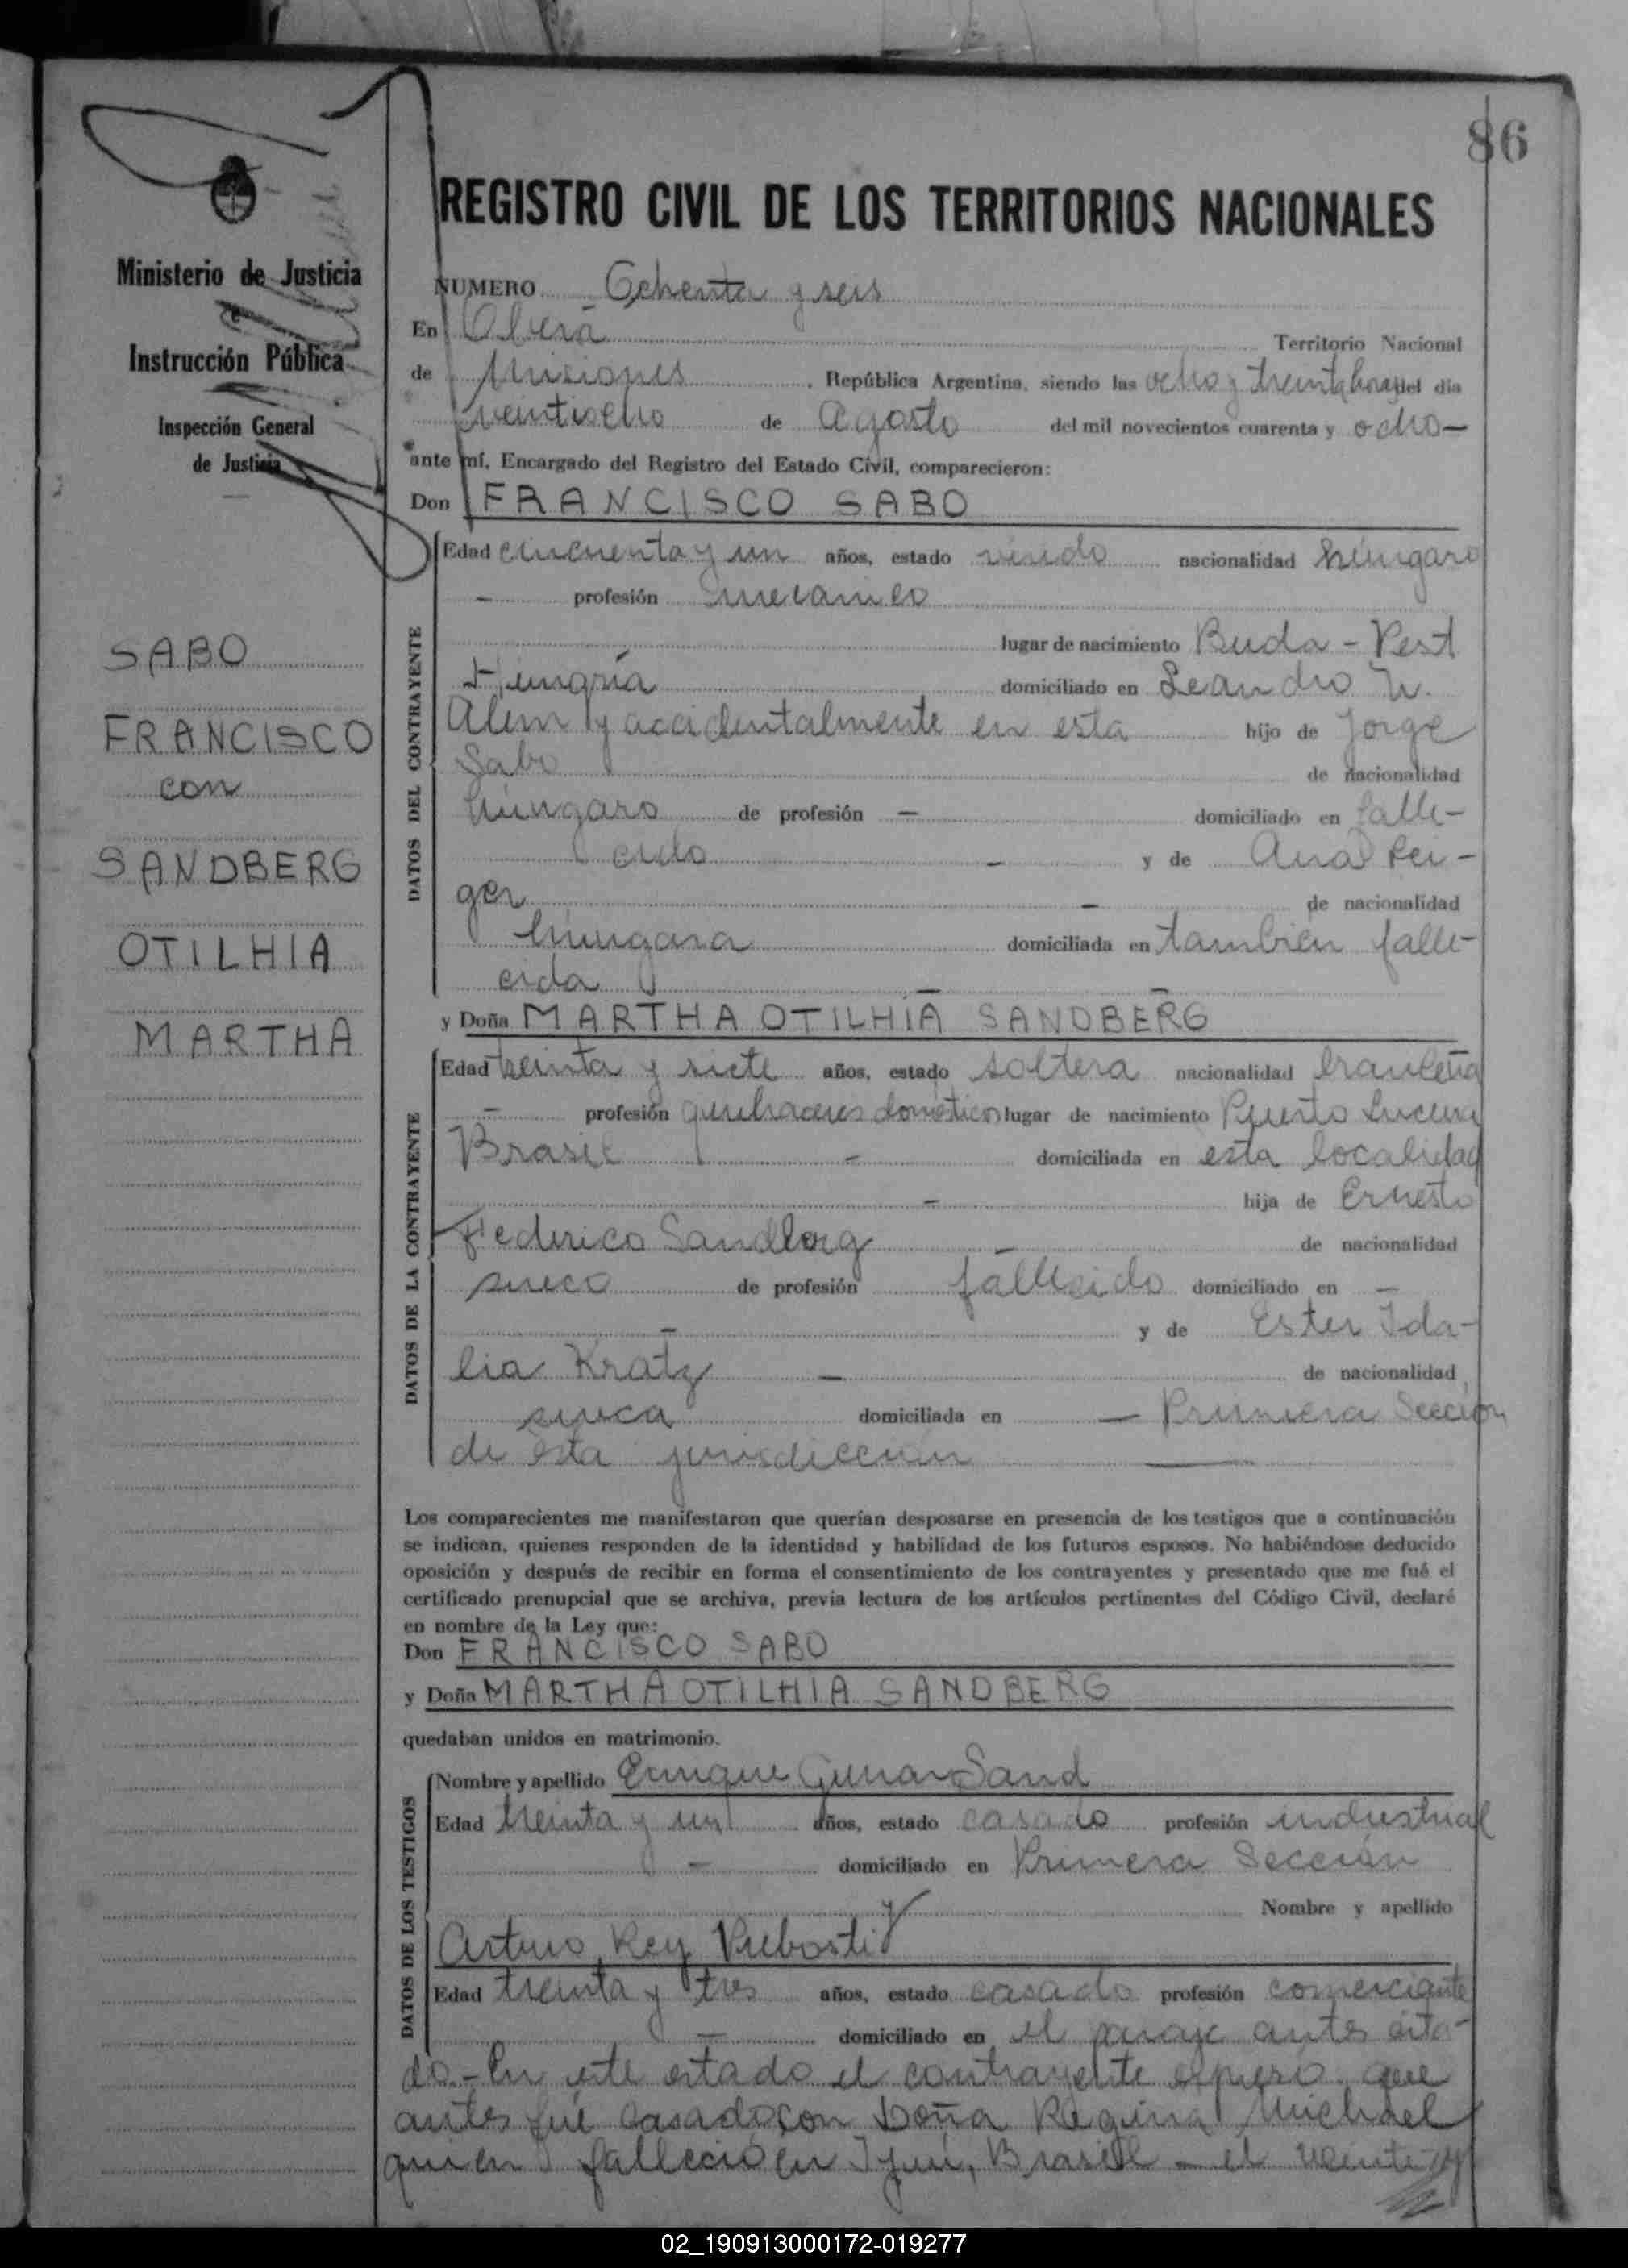 86
REGISTRO CIVIL DE LOS TERRITORIOS NACIONALES
Ministerio de Justicia
e
Instrucción Pública
Inspección General
de Justicia
SABO
FRANCISCO
con
SANDBERG
OTILHIA
MARTHA
NUMERO Ochenta y seis
En Oberá Territorio Nacional
de Misiones, República Argentina, siendo las ocho y treinta horas del día
veintiocho de Agosto del mil novecientos cuarenta y ocho—
ante mí, Encargado del Registro del Estado Civil, comparecieron:
Don FRANCISCO SABO
DATOS DEL CONTRAYENTE
Edad cincuenta y un años, estado viudo nacionalidad húngaro
– profesión mecanico
lugar de nacimiento Buda-Pest
Hungría domiciliado en Leandro N.
Alem y accidentalmente en esta hijo de Jorge
Sabo de nacionalidad
húngaro de profesión – domiciliado en falle-
cido – y de Ana
ger – de nacionalidad
húngara domiciliada en también falle-
cida – –
y Doña MARTHA OTILHIA SANDBERG
DATOS DE LA CONTRAYENTE
Edad treinta y siete años, estado soltera nacionalidad brasileña
– profesión quehaceres domésticos lugar de nacimiento Puerto Lucena
Brasil – domiciliada en esta localidad
– hija de Ernesto
Federico Sandberg – de nacionalidad
sueco de profesión fallecido domiciliado en –
– y de Ester Ida-
lia Kratz – de nacionalidad
sueca domiciliada en – Primera Sección
de esta jurisdicción —
Los comparecientes me manifestaron que querían desposarse en presencia de los testigos que a continuación
se indican, quienes responden de la identidad y habilidad de los futuros esposos. No habiéndose deducido
oposición y después de recibir en forma el consentimiento de los contrayentes y presentado que me fué el
certificado prenupcial que se archiva, previa lectura de los artículos pertinentes del Código Civil, declaré
en nombre de la Ley que:
Don FRANCISCO SABO
y Doña MARTHA OTILHIA SANDBERG
quedaban unidos en matrimonio.
DATOS DE LOS TESTIGOS
Nombre y apellido Enrique Gunar Sand
Edad treinta y un años, estado casado profesión industrial
– domiciliado en Primera Sección
y Nombre y apellido
Arturo Rey
Edad treinta y tres años, estado casado profesión comerciante
– domiciliado en el paraje antes cita-
do.- En este estado el contrayente expresó que
antes fué casado con Doña Regina Michael
quien falleció en Ijuí, Brasil – el veinte y
02_190913000172-019277